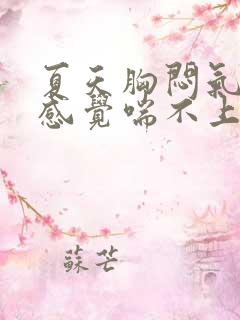 夏天胸悶氣
感覺喘不上
蘇芒